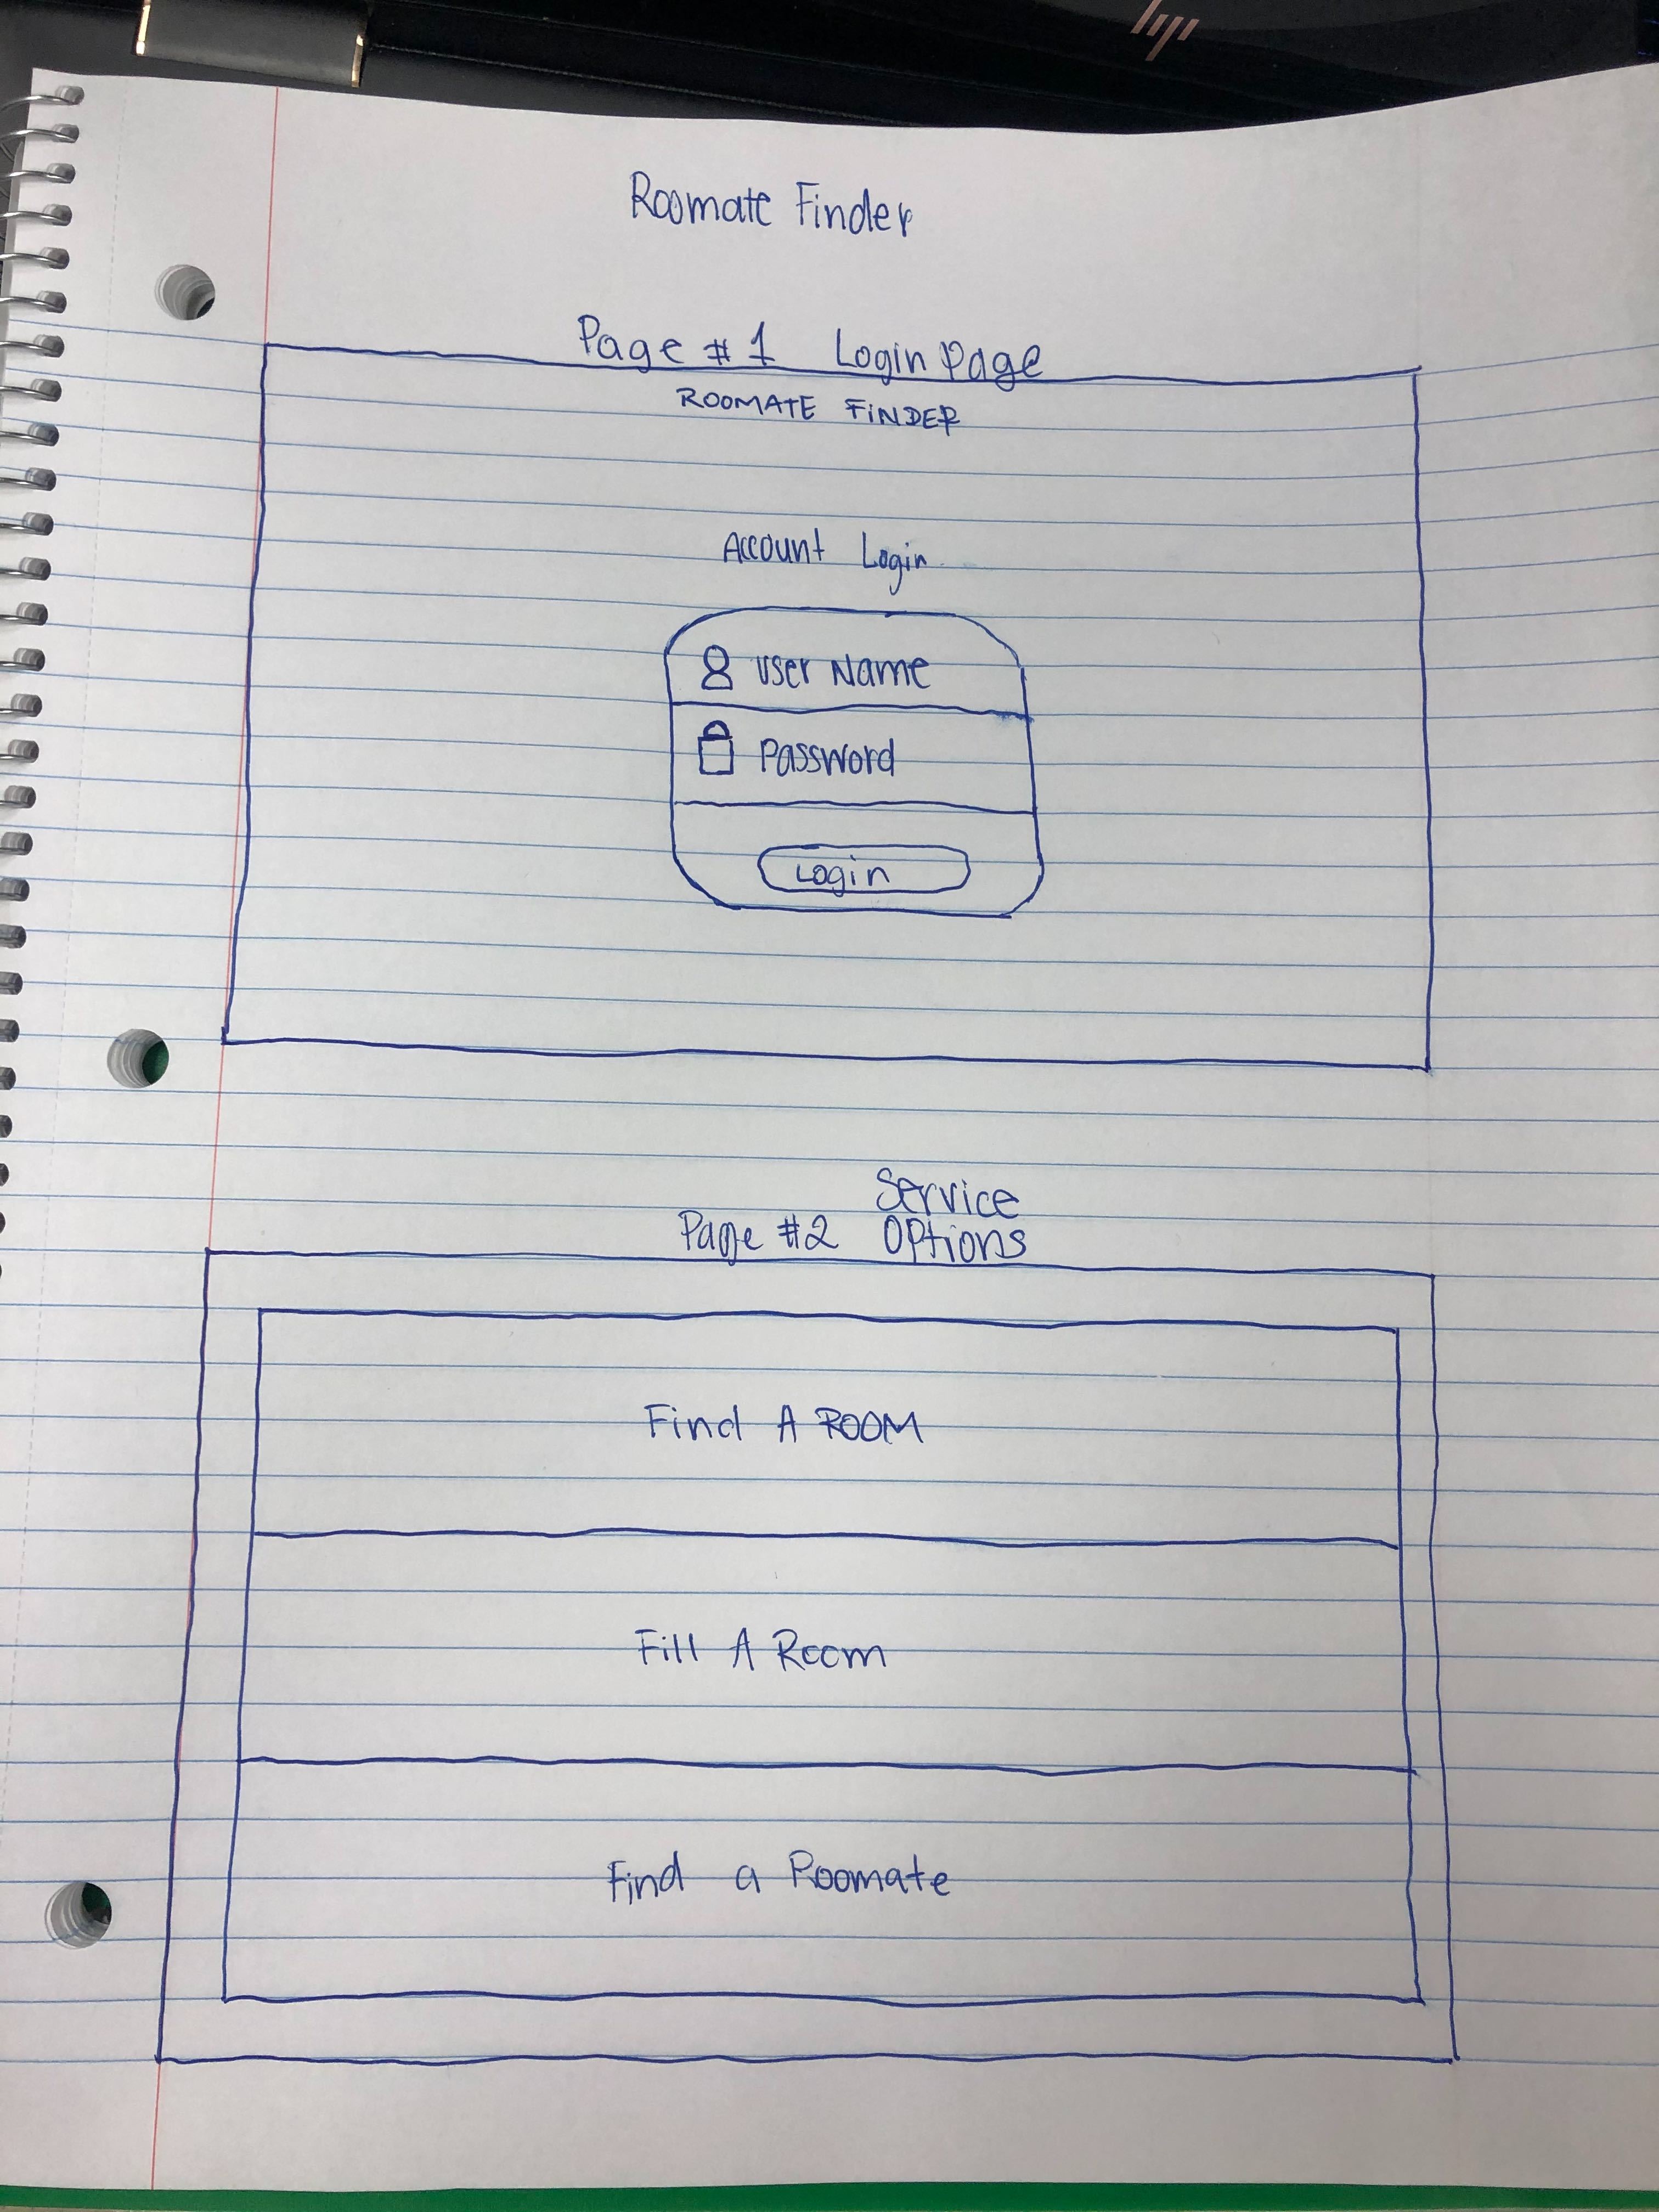 Roomate Finder
Page # 1 Login Page
ROOMATE FINDER
Account Login
User Name
Password
Login
Service
Page #2 Options
Find A ROOM
Fill A Room
Find a Roomate
hp